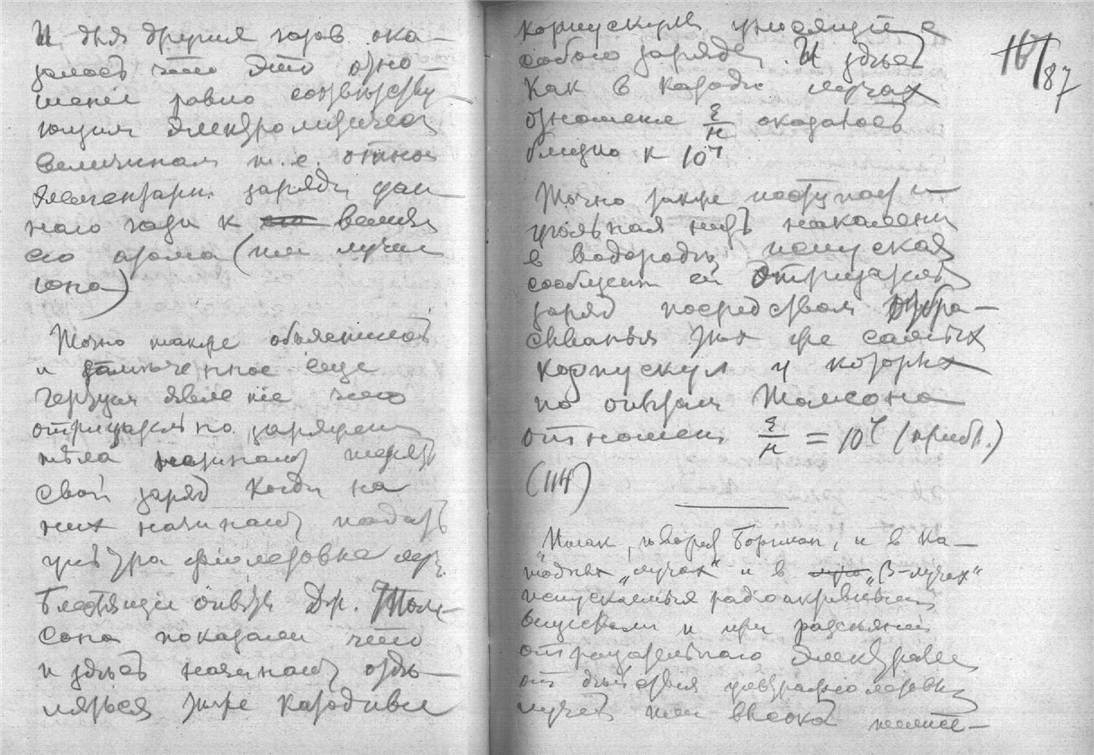 И для других газов ока-
залось что это отно-
шение равно соотвѣтству-
ющим электролитическ
величинам т.е. относ
элементарн. заряда дан-
наго газа к вешея
его атома (или лучше
iона)
Точно также объясняется
и замѣченное еще
Герцом явленіе что
отрицательно заряжен
тѣла начинают терять
свой заряд когда на
них начинают падать
ультрафиолетовые луч.
Блестящие опыты Дж. Томс-
сона показали что
и здѣсь начинают отдѣ-
ляться те же катодные
корпускулы уносящие с
собою заряды. И здѣсь
Как в катодн лучах
отношение ε/μ оказалось
близко к 10⁷
16/87
Точно также поступает и
угольная нить накаленн
в водородѣ, испуская
сообщает ей отрицател
заряд посредством отбра-
сыванья тѣх же самых
корпускул у которых
по опытам Томсона
отношен ε/μ = 10⁷ (прибл.)
(114)
"Итак, говорит Боргман, и в Ка-
тодных "лучах" и в "β-лучах"
испускаемыя радиоактивным
веществами и при разсѣянiи
отрицательнаго электричес
от дѣйствiя ультрафиолетовых
лучей или высокой темпе-